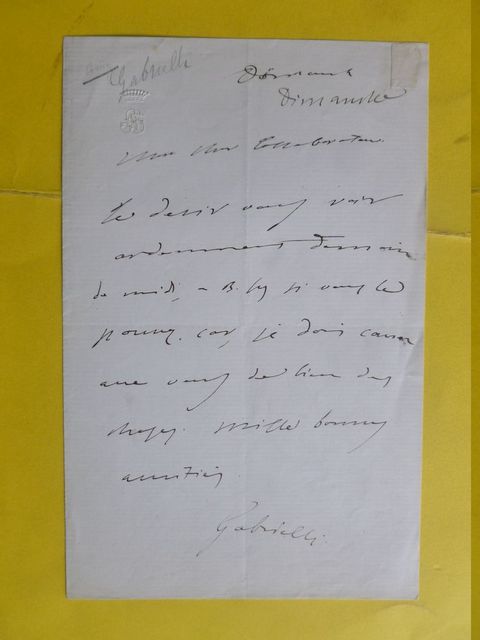 Gabrielli
Dimanche
Mon cher Collaborateur
Je desir vous voir
ardemment Demain
de midi, a
si vous le
pouvez. car, je dois causer
avec vous de bien des
choses. Mille bonnes
amitiés
Gabrielli.